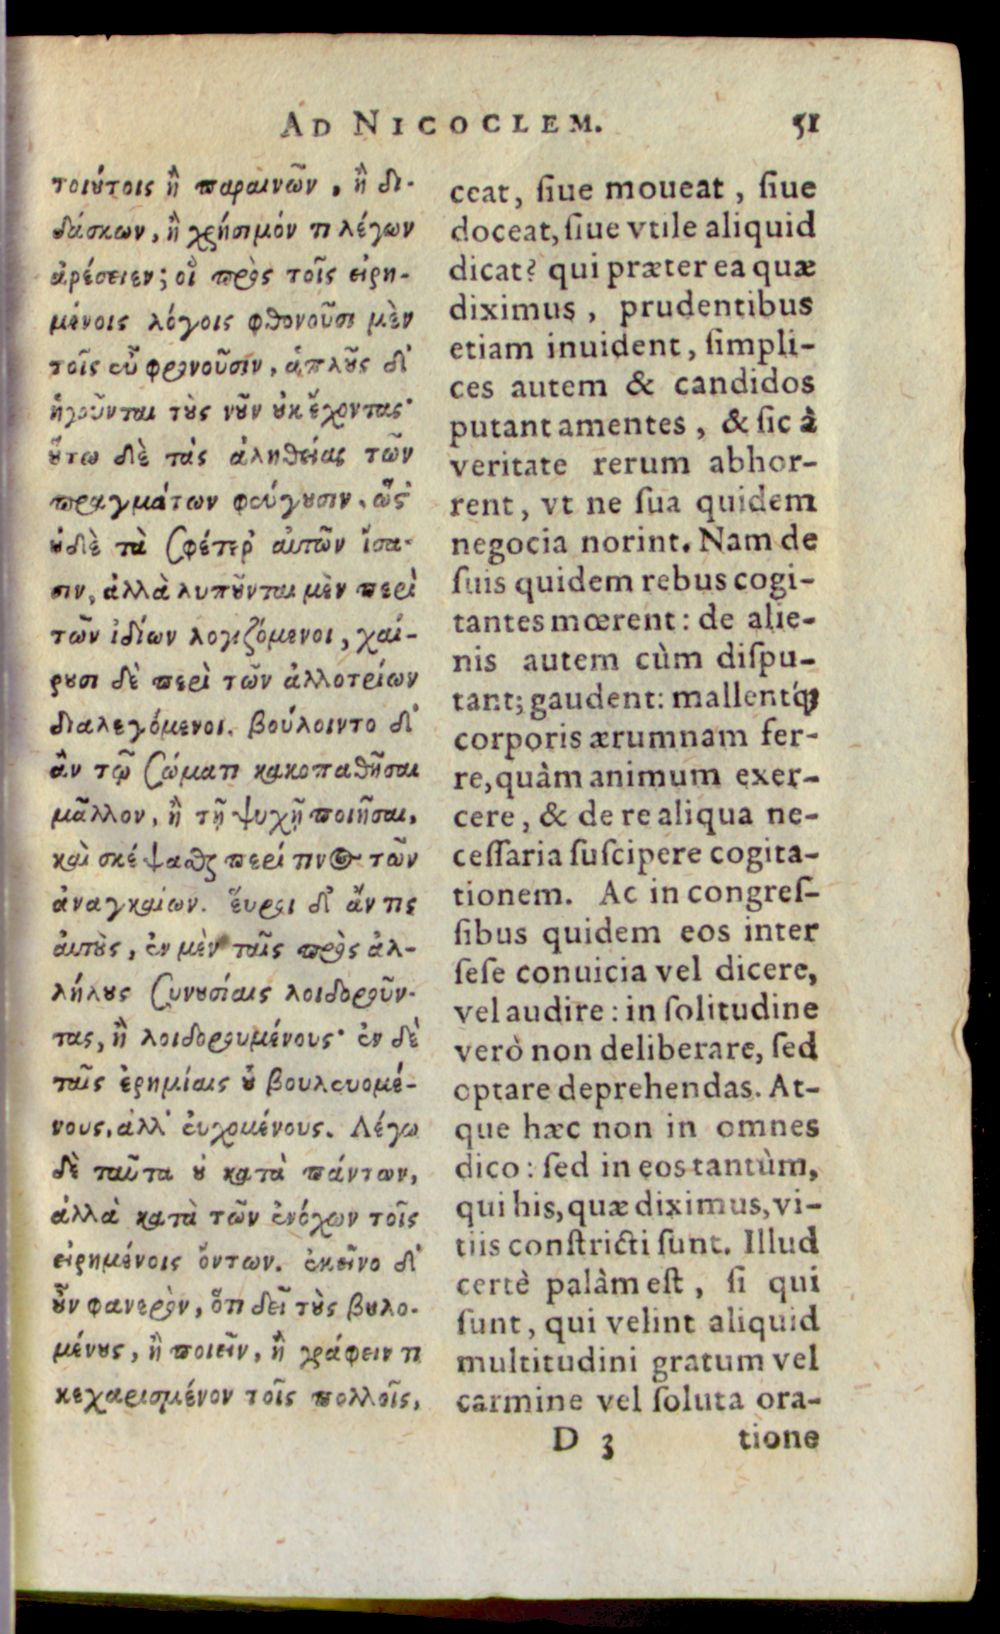 AD NICOCLEM. 51
τοιούτοις ἢ παραινῶν, ἢ δι-
δάσκων, ἢ χρήσιμόν τι λέγων
ἀρέσειεν; οἳ πρὸς τοῖς εἰρη-
μένοις λόγοις φθονοῦσι μὲν
τοῖς εὖ φρονοῦσιν, ἁπλοῦς δ'
ἡγοῦνται τοὺς νοῦν οὐκ ἔχοντας·
οὕτω δὲ τὰς ἀληθείας τῶν
πραγμάτων φεύγουσιν, ὥς
οὐδὲ τὰ σφέτερ' αὐτῶν ἴσα-
σιν, ἀλλὰ λυποῦνται μὲν περὶ
τῶν ἰδίων λογιζόμενοι, χαί-
ρουσι δὲ περὶ τῶν ἀλλοτρίων
διαλεγόμενοι. βούλοιντο δ'
ἂν τῷ σώματι κακοπαθῆσαι
μᾶλλον, ἢ τῇ ψυχῇ ποιῆσαι,
καὶ σκέψασθαι περί τινος τῶν
ἀναγκαίων. εὕροι δ' ἄν τις
αὐτοὺς, ἐν μὲν ταῖς πρὸς ἀλ-
λήλους συνουσίαις λοιδοροῦν-
τας, ἢ λοιδορουμένους· ἐν δὲ
ταῖς ἐρημίαις οὐ βουλευομέ-
νους, ἀλλ' εὐχομένους. Λέγω
δὲ ταῦτα οὐ κατὰ πάντων,
ἀλλὰ κατὰ τῶν ἐνόχων τοῖς
εἰρημένοις ὄντων. ἐκεῖνο δ'
οὖν φανερὸν, ὅτι δεῖ τοὺς βουλο-
μένους, ἢ ποιεῖν, ἢ γράφειν τι
κεχαρισμένον τοῖς πολλοῖς,
ceat, ſiue moueat, ſiue
doceat, ſiue vtile aliquid
dicat? qui præter ea quæ
diximus, prudentibus
etiam inuident, ſimpli-
ces autem & candidos
putant amentes, & ſic à
veritate rerum abhor-
rent, vt ne ſua quidem
negocia norint. Nam de
ſuis quidem rebus cogi-
tantes mœrent: de alie-
nis autem cùm diſpu-
tant; gaudent: mallentq́;
corporis ærumnam fer-
re, quàm animum exer-
cere, & de re aliqua ne-
ceſſaria ſuſcipere cogita-
tionem. Ac in congreſ-
ſibus quidem eos inter
ſeſe conuicia vel dicere,
vel audire: in ſolitudine
verò non deliberare, ſed
optare deprehendas. At-
que hæc non in omnes
dico: ſed in eos tantùm,
qui his, quæ diximus, vi-
tiis conſtricti ſunt. Illud
certè palàm eſt, ſi qui
ſunt, qui velint aliquid
multitudini gratum vel
carmine vel ſoluta ora-
D 3 tione